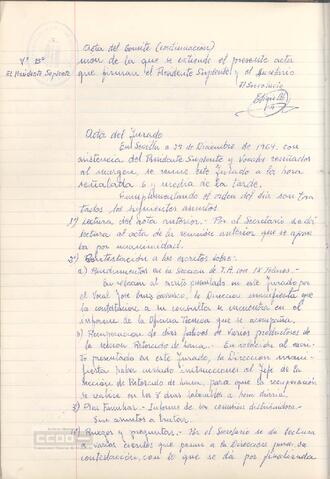 Acta del Comité (continuación)
Vº Bº
El Presidente Suplente
nión de la que se extiende el presente acta
que firman el Presidente Suplente y el Secretario
El Secretario
Acta del Jurado
En Sevilla a 29 de Diciembre de 1964, con
asistencia del Presidente Suplente y Vocales reseñados
al margen, se reune este Jurado a la hora
señalada 6 y media de la tarde.
Cumplimentando el orden del dia son tra-
tados los siguientes asuntos.
1º) Lectura del acta anterior.- Por el Secretario se da
lectura al acta de la reunión anterior que se aprue
ba por unanimidad.
2º) Contestación a los escritos sobre:-
a) Rendimientos en la Sección de T.A. con IX telares.-
En relación al escrito presentado en este Jurado por
el Vocal José Luis, la Dirección manifiesta que
la contestación a su consulta se encuentra en el
informe de la Oficina Técnica que se acompaña.
b) Recuperación de dias festivos de varios productores de
la sección Retorcido de Lana.- En relación al escri-
to presentado en este Jurado, la Dirección mani-
fiesta haber cursado instrucciones al Jefe de la
Sección de Retorcido de Lana, para que la recuperación
se realice en los 5 dias laborables a hora diaria.
3º) Plus Familiar.- Informe de los comisión distribuidora.-
Sin asuntos a tratar.
4º) Ruegos y preguntas.- Por el Secretario se da lectura
a varios escritos que pasan a la Dirección para su
contestación, con lo que se da por finalizada
CCOO